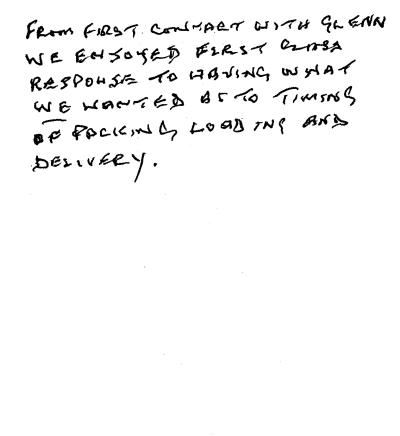 FROM FIRST CONTACT WITH GLENN
WE ENJOYED FIRST CLASS
RESPONSE TO HAVING WHAT
WE WANTED AS TO TIMING
OF PACKING LOADING AND
DELIVERY.